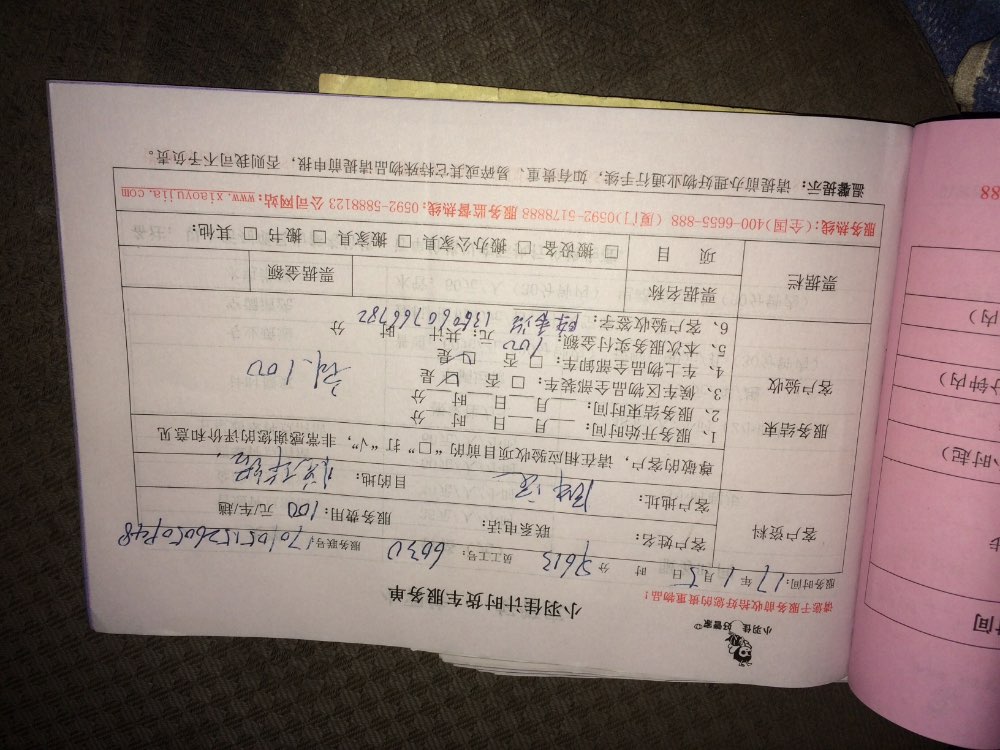 小羽佳 好管家
小羽佳计时货车服务单
请您于服务前收拾好您的贵重物品！
服务时间： 17年1月5日 时 分 员工号： 6630 服务联号
客户资料
客户姓名： 联系电话： 服务费用： 100 元/车/趟
客户地址： 目的地：
服务结束
客户验收
尊敬的客户，请在相应验收项目前的“□”打“√”，非常感谢您的评价和意见
1、服务开始时间： 月 日 时 分
2、服务结束时间： 月 日 时 分
3、候车区物品全部装车：□否 ☑是
4、车上物品全部卸车：□否 ☑是
5、本次服务实付金额：100 元；共计： 时 分
6、客户验收签字：
100
票据栏
票据名称 票据金额
项 目 □ 搬设备 □ 搬办公家具 □ 搬家具 □ 搬书 □ 其他：
服务热线：(全国)400-6655-888 (厦门)0592-5178888 服务监督热线：0592-5888123 公司网站：www.xiaoyujia.com
温馨提示：请提前办理好物业通行手续，如有贵重、易碎或其它特殊物品请提前申报，否则我司不予负责。
88
内)
分钟内)
小时起)
时间